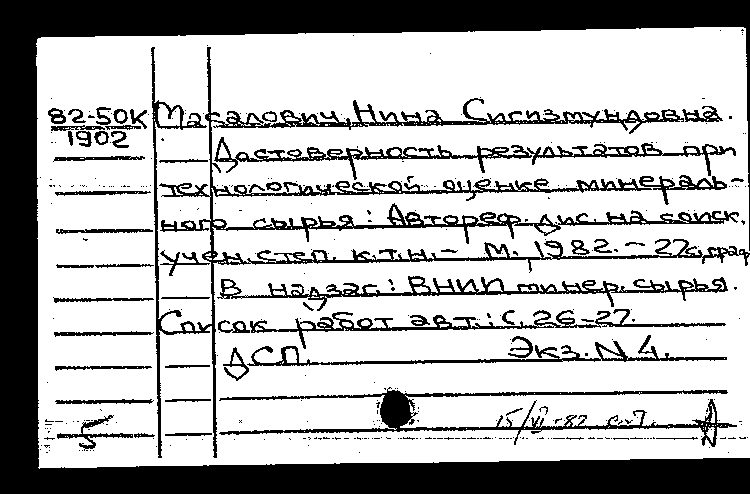 82-50К Масалович, Нина Сигизмундовна.
1902
Достоверность результатов при
технологической оценке минераль-
ного сырья: Автореф. дис. на соиск.
учен. степ. к.т.н. - М., 1982. - 27с, граф
В надзаг.: ВНИИ минер. сырья.
Список работ авт.: с. 26-27.
ДСП. Экз. N 4.
5 15/VI-82